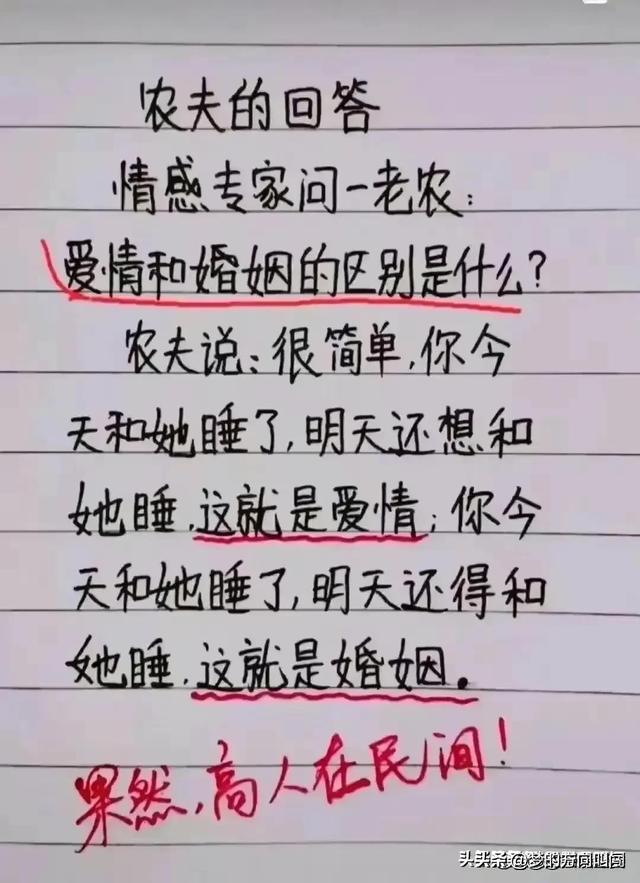 农夫的回答
情感专家问一老农:
爱情和婚姻的区别是什么?
农夫说:很简单,你今
天和她睡了,明天还想和
她睡,这就是爱情;你今
天和她睡了,明天还得和
她睡,这就是婚姻。
果然,高人在民间!
头条